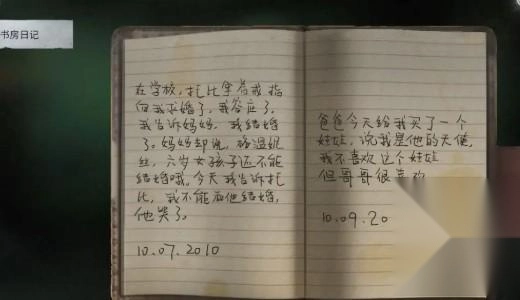 书房日记
在学校，托比拿着戒指
向我求婚了，我答应了，
我告诉妈妈，我结婚
了。妈妈却说，格温妮
丝，六岁女孩子还不能
结婚哦。今天我告诉托
比，我不能和他结婚，
他哭了。
10.07.2010
爸爸今天给我买了一个
娃娃，说我是他的天使，
我不喜欢这个娃娃
但哥哥很喜欢
10.09.20